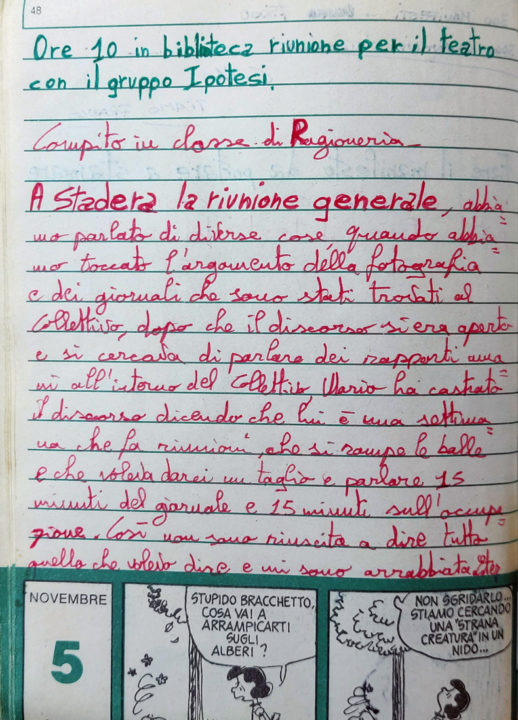 48
Ore 10 in biblioteca riunione per il teatro
con il gruppo Ipotesi.
Compito in classe di Ragioneria
A Stadera la riunione generale, abbia=
mo parlato di diverse cose, quando abbia=
mo toccato l'argomento della fotografia
e dei giornali che sono stati trovati al
Collettivo, dopo che il discorso si era aperto
e si cercava di parlare dei rapporti uma
ni all'interno del Collettivo, Mario ha castrato
il discorso dicendo che lui è una settima=
na che fa riunioni, che si rompe le balle
e che voleva darci un taglio e parlare 15
minuti del giornale e 15 minuti sull'occupa=
zione. Così non sono riuscita a dire tutto
quello che volevo dire e mi sono arrabbiata
NOVEMBRE
5
STUPIDO BRACCHETTO,
COSA VAI A
ARRAMPICARTI
SUGLI
ALBERI?
NON SGRIDARLO...
STIAMO CERCANDO
UNA "STRANA
CREATURA" IN UN
NIDO...